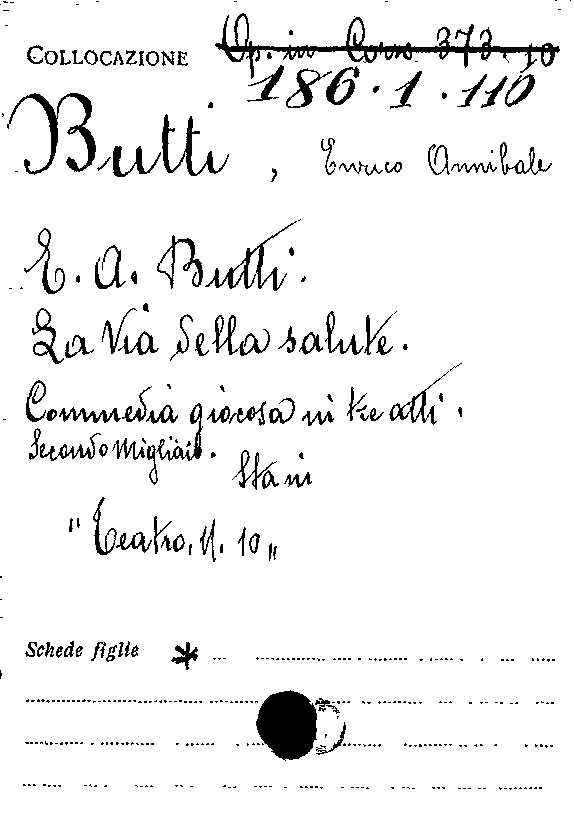 COLLOCAZIONE Op. in Cons. 373.10
186.1.110
Butti, Enrico Annibale
E. A. Butti.
La Via della salute.
Commedia giocosa in tre atti.
Secondo Migliaio.
Sta in
"Teatro, N. 10"
Schede figlie *